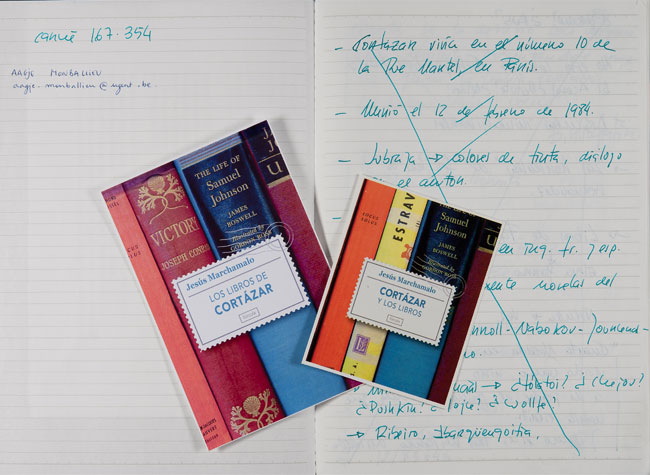 carné 167.354
AAGJE MONBALLIEU
aagje.monballieu@ugent.be.
- Cortázar vivía en el número 10 de
la Rue Martel, en París.
- Murió el 12 de febrero de 1984.
- Subraya → colores de tinta, diálogo
el autor.
en ing. fr. y esp.
novelas del
Nabokov-
→ ¿Tolstoi? ¿Chejov?
¿Pushkin? ¿Joyce?
→ Ribeiro, Ibargüengoitia.
VICTORY
JOSEPH CONRAD
THE LIFE OF
Samuel
Johnson
JAMES
BOSWELL
Illustrated by
GORDON ROSS
Jesús Marchamalo
LOS LIBROS DE
CORTÁZAR
ESTRAV
Samuel
Johnson
JAMES
BOSWELL
Jesús Marchamalo
CORTÁZAR
Y LOS LIBROS